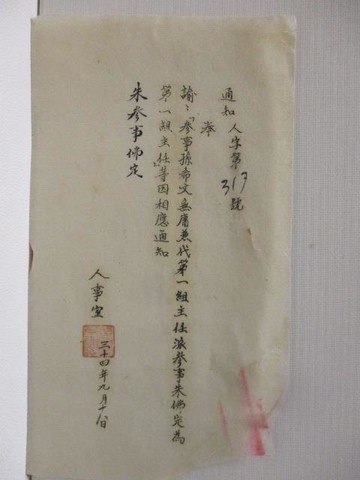 通知 人字第317號
奉
諭：「參事孫希文毋庸兼代第一組主任派參事朱佛定為
第一組主任」等因相應通知
朱參事佛定
人事室
三十四年九月十日